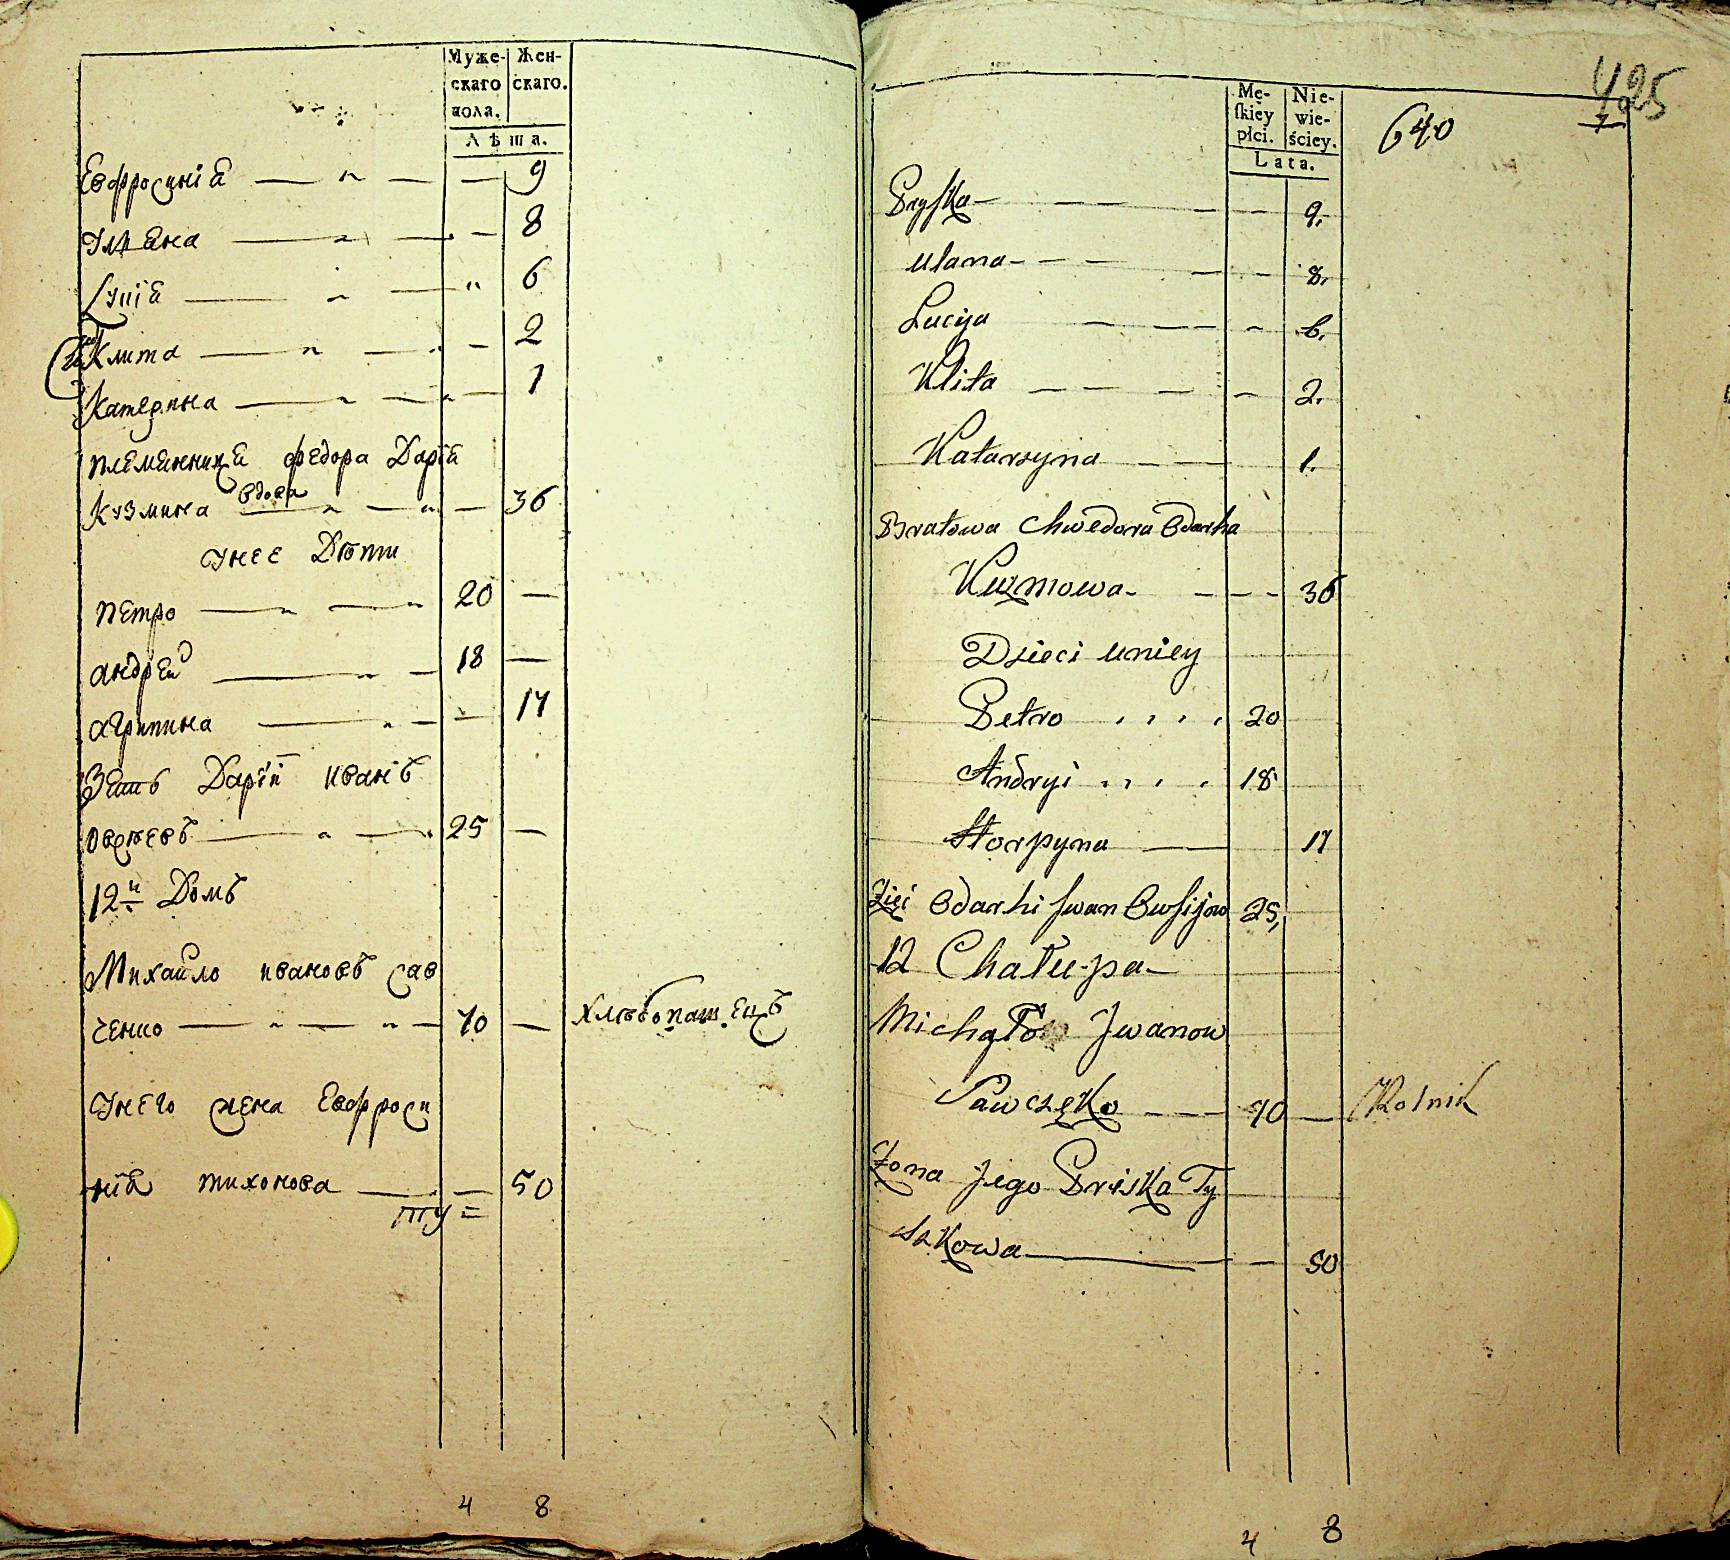 Муже-
скаго
пола.
Жен-
скаго.
Лѣта.
Евфросиніа — — — 9
Уліана — — — 8
Луціа — — — 6
Клита — — — 2
Катерина — — — 1
племянница федора Даріа
Кузмина вдова — — — 36
Унее Дѣти
петро — — 20 —
андреи — — 18 —
агрипина — — — 17
Зять Даріи иванъ
овсѣевъ — — 25 —
12й Домъ
Михаило ивановъ сав
ченко — — — 70 — хлѣбопашецъ
Унего жена Евфроси
ніа тихонова — — 50
4 8
425
640
Mę-
skiey
płci.
Nie-
wie-
ściey.
Lata.
Pryska — — — — 9.
Ulana — — — — 8.
Lucija — — — — 6.
Klita — — — — 2.
Katarzyna — — 1.
Bratowa Chwedora Odarka
Kuzmowa — — — 36
Dzieci uniey
Petro 20
Andryi 18
Horpyna — 17
Zięć Odarki Iwan Owsijow 25,
12 Chałupa
Michało Iwanow
Sawczęko — — 70 — Rolnik
Żona Jego Priska Ty
szkowa — — 50
4 8